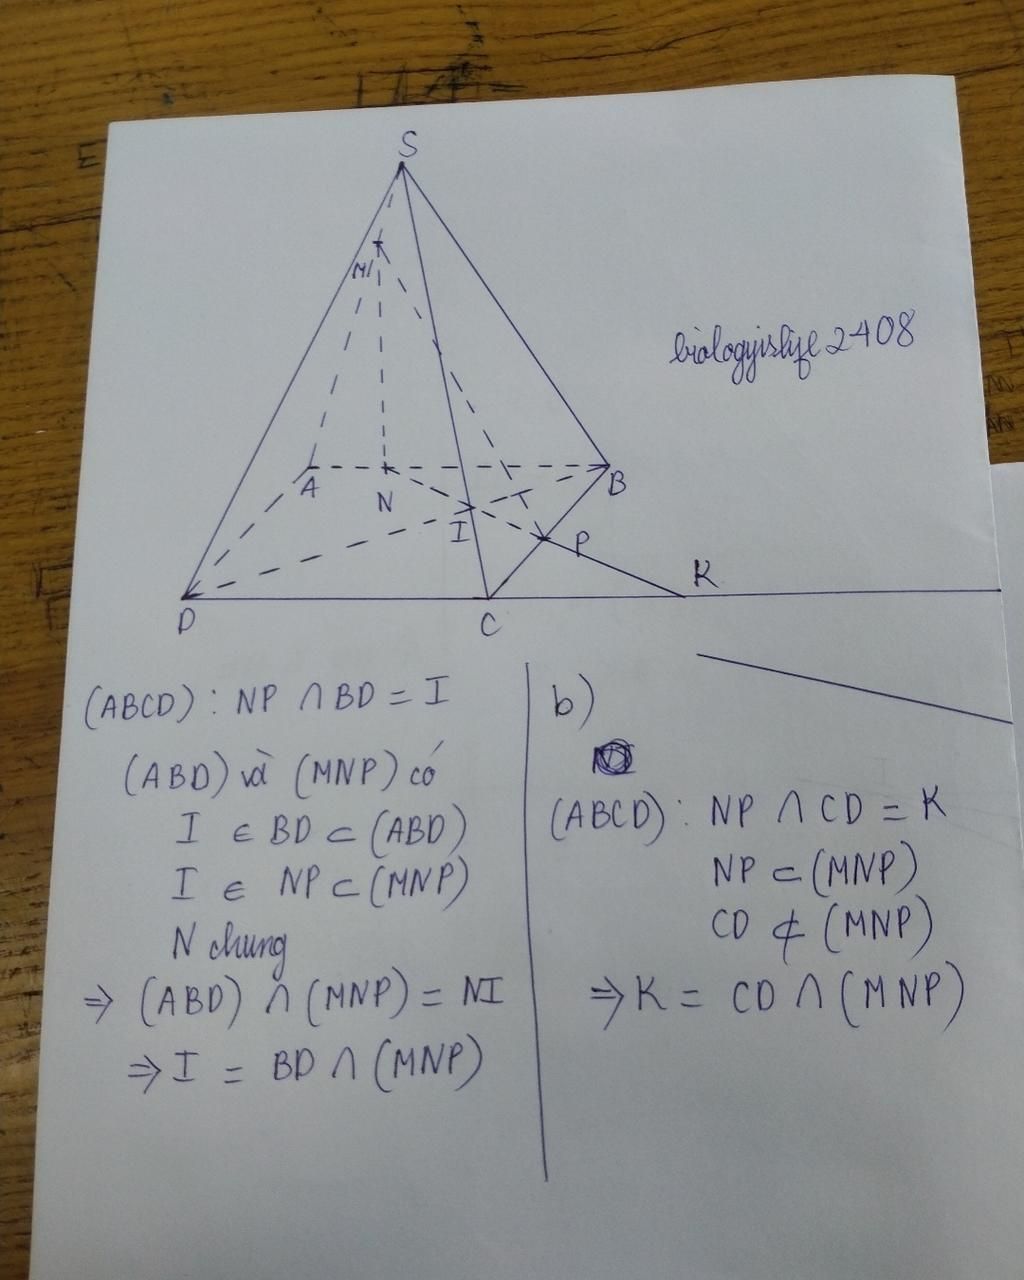 S
M
biologyislife2408
A
N
B
I
P
K
D
C
(ABCD) : NP ∩ BD = I
(ABD) và (MNP) có
I ∈ BD ⊂ (ABD)
I ∈ NP ⊂ (MNP)
N chung
⇒ (ABD) ∩ (MNP) = NI
⇒ I = BD ∩ (MNP)
b)
(ABCD) : NP ∩ CD = K
NP ⊂ (MNP)
CD ⊄ (MNP)
⇒ K = CD ∩ (MNP)